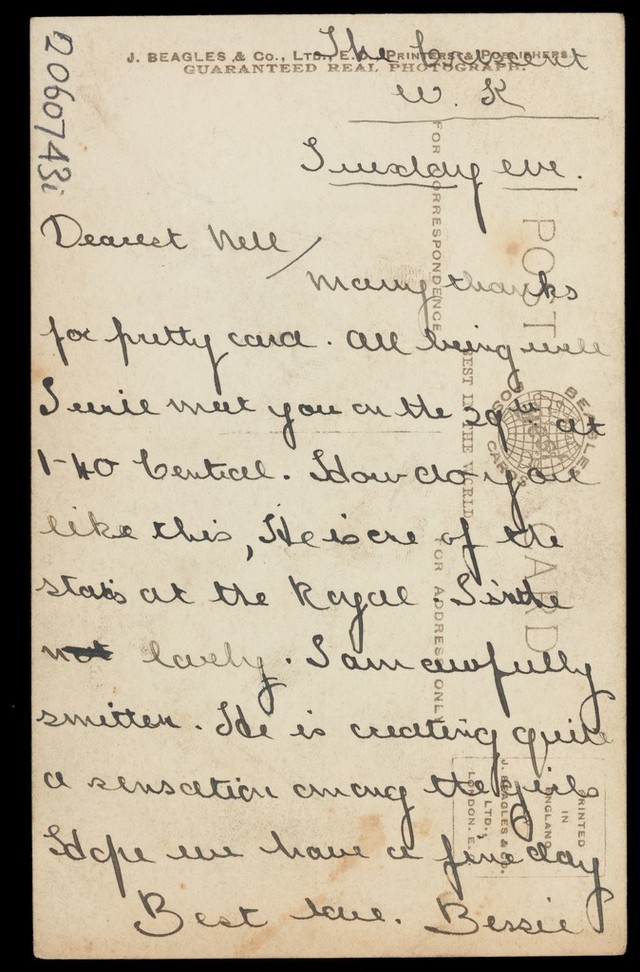 2060743i
J. BEAGLES & Co., LTD., E.C. PRINTERS & PUBLISHERS
GUARANTEED REAL PHOTOGRAPH.
The Crescent
W. K
Tuesday eve.
Dearest Nell
Many thanks
for pretty card. All being well
I will meet you on the 29th at
1-40 Central. How do you
like this, He is one of the
stars at the Royal. Isn't he
not lovely. I am awfully
smitten. He is creating quite
a sensation among the girls
Hope we have a fine day
Best love. Bessie
POST CARD
FOR CORRESPONDENCE
BEST IN THE WORLD
FOR ADDRESS ONLY
BEAGLES
CARDS
PRINTED
IN
ENGLAND
J. BEAGLES & Co.
LTD.,
LONDON. E.C.